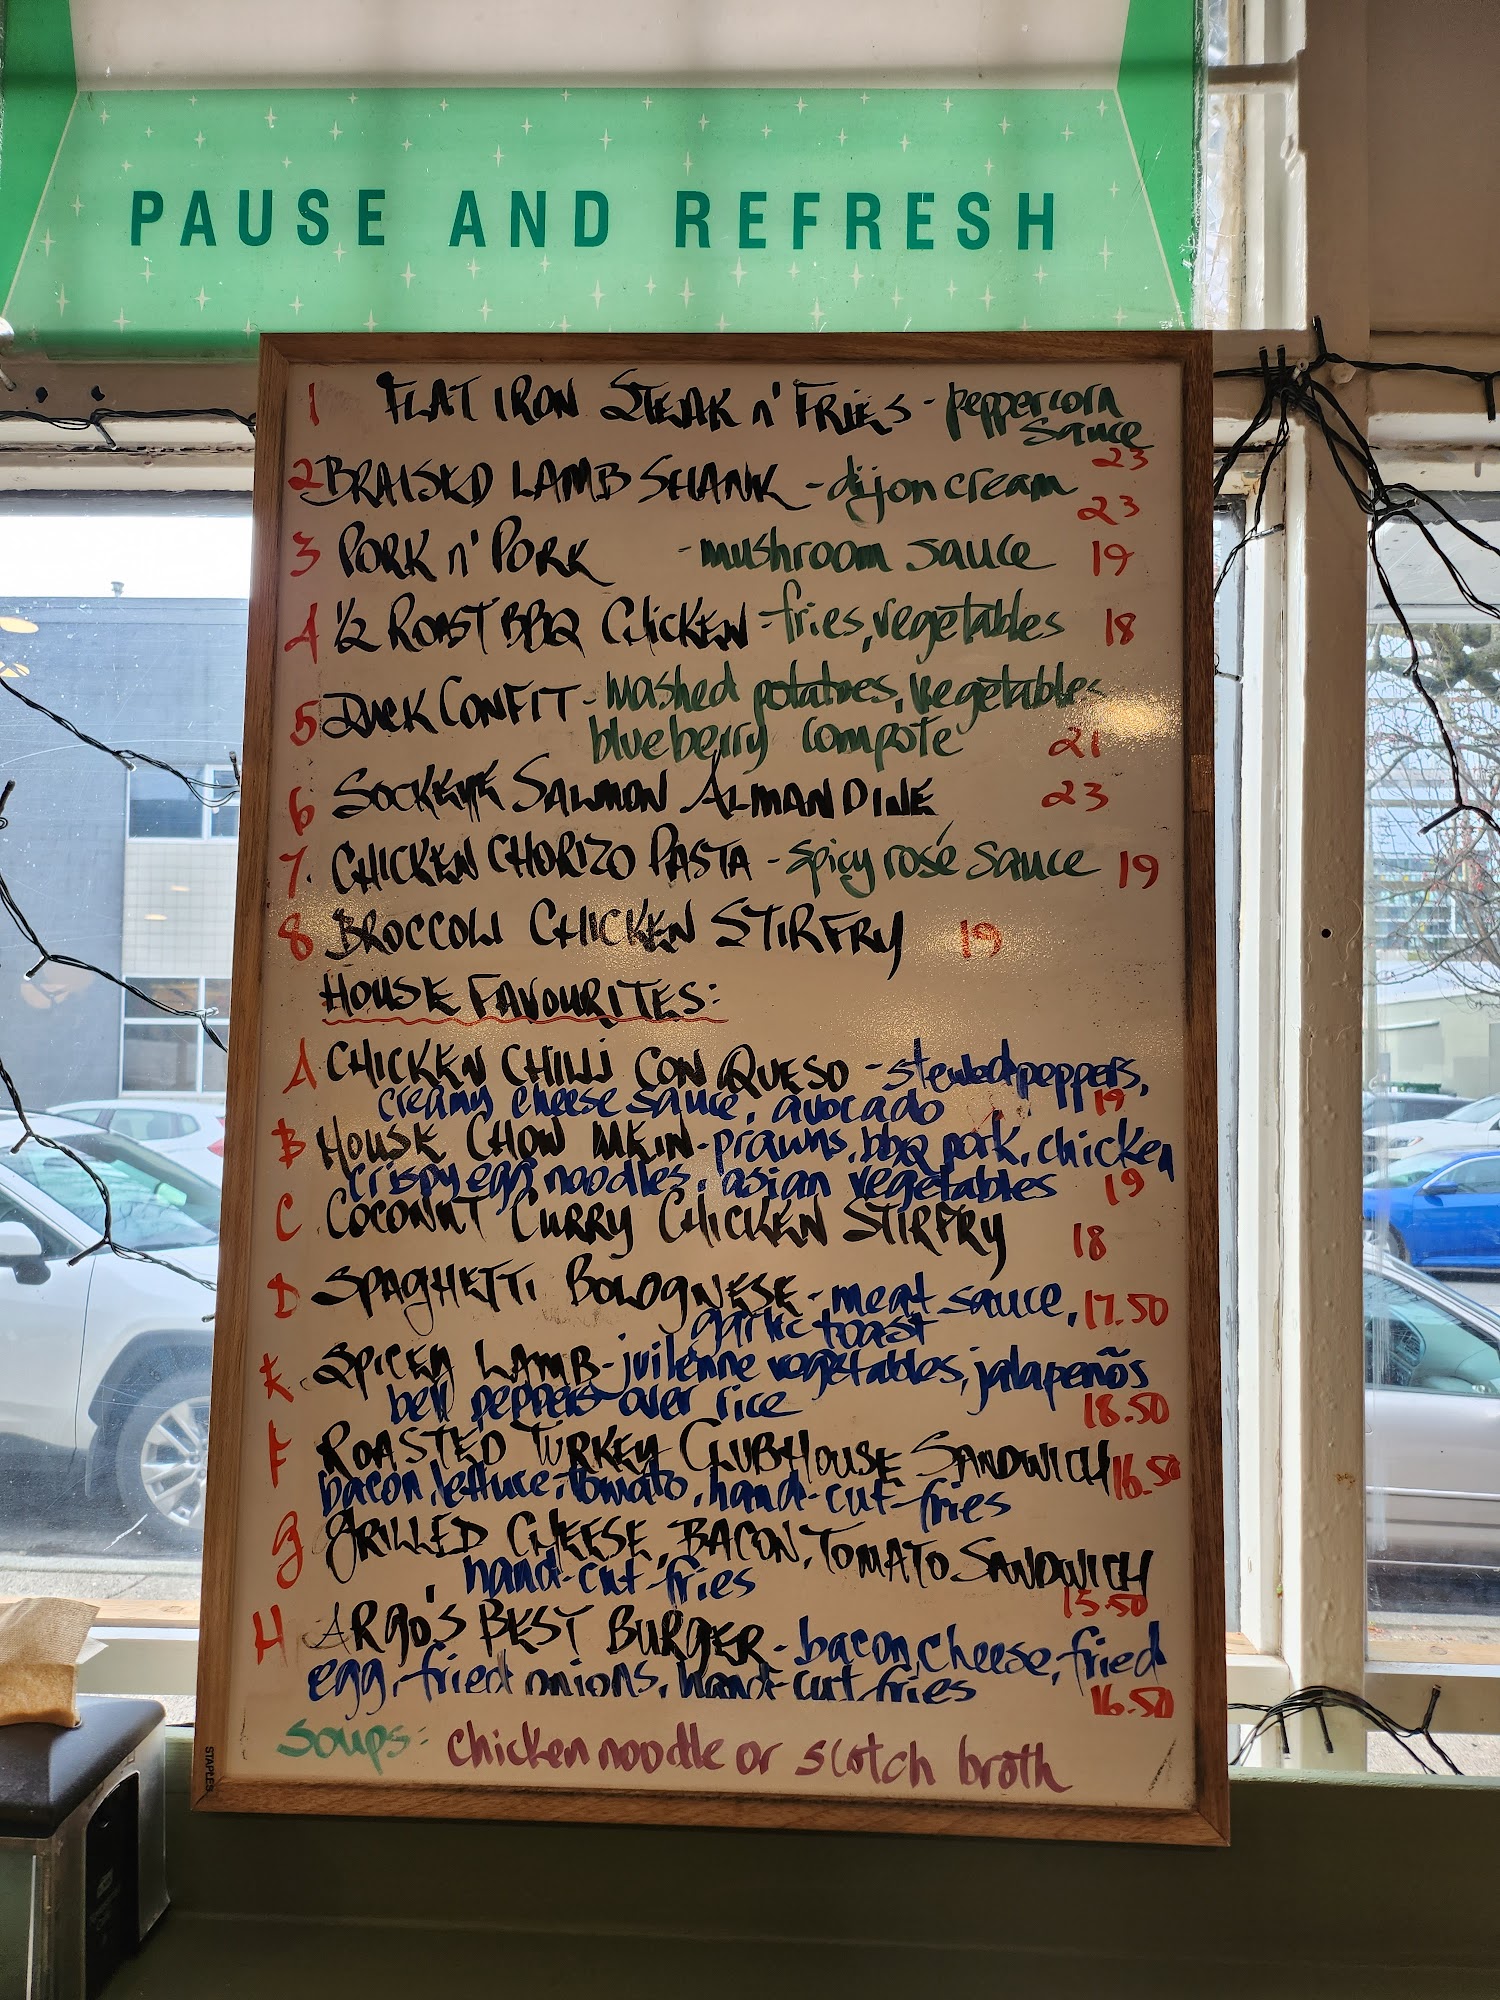 PAUSE AND REFRESH
1 FLAT IRON STEAK n' FRIES - peppercorn
sauce
23
2 BRAISED LAMB SHANK - dijon cream
23
3 PORK n' PORK - mushroom sauce 19
4 ½ ROAST BBQ CHICKEN - fries, vegetables 18
5 DUCK CONFIT - mashed potatoes, vegetables
blueberry compote 21
6 SOCKEYE SALMON ALMANDINE 23
7. CHICKEN CHORIZO PASTA - spicy rosé sauce 19
8 BROCCOLI CHICKEN STIRFRY 19
HOUSE FAVOURITES:
A CHICKEN CHILLI CON QUESO - stewed peppers,
creamy cheese sauce, avocado 19
B HOUSE CHOW MEIN - prawns, bbq pork, chicken
crispy egg noodles, asian vegetables 19
C COCONUT CURRY CHICKEN STIRFRY 18
D SPAGHETTI BOLOGNESE - meat sauce, 17.50
garlic toast
E SPICEY LAMB - juilenne vegetables, jalapeños
bell peppers over rice 18.50
F ROASTED TURKEY CLUBHOUSE SANDWICH 16.50
bacon, lettuce, tomato, hand-cut-fries
G GRILLED CHEESE, BACON, TOMATO SANDWICH
hand-cut-fries 15.50
H ARGO'S BEST BURGER - bacon, cheese, fried
egg, fried onions, hand-cut fries 16.50
Soups: chicken noodle or scotch broth
STAPLES